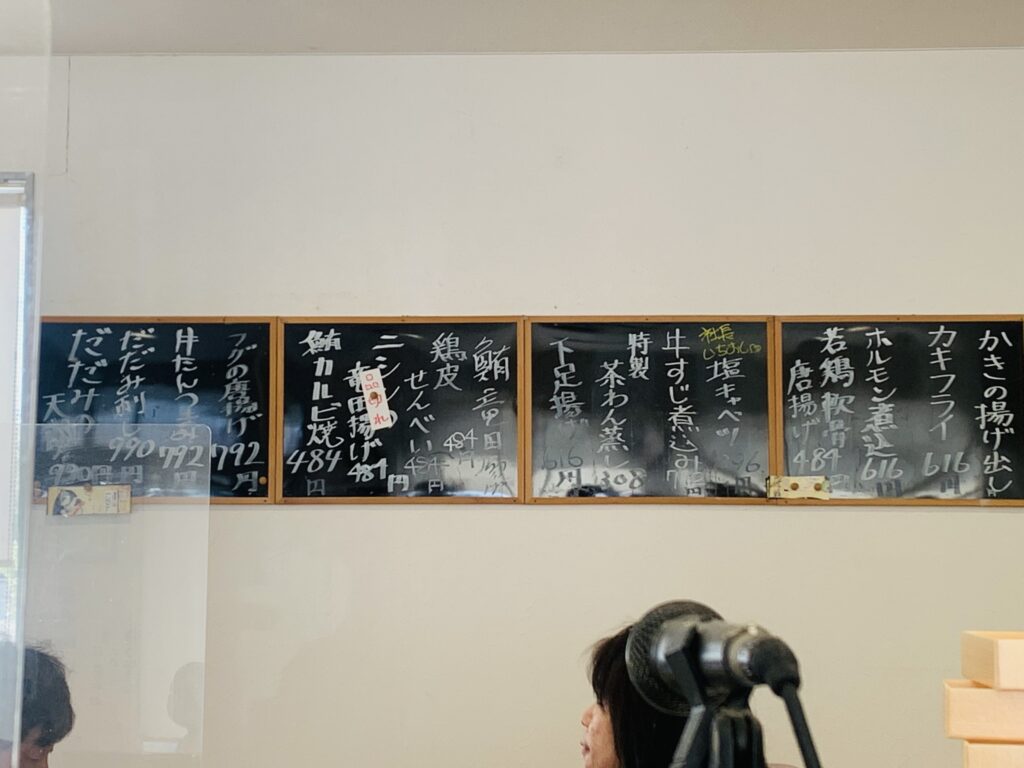 かきの揚げ出し
カキフライ
616
ホルモン煮込
616円
若鶏軟骨
唐揚げ
484
社長
いちおし
塩キャベツ
牛すじ煮込み
特製
茶わん蒸し
308
下足揚げ
616円
鮪竜田
鶏皮
せんべい
484円
ニシンの
竜田揚げ
484円
品切れ
鮪カルビ焼
484円
フグの唐揚げ
792円
牛たんつまみ
792円
だだみ刺し
990円
だだみの
天
990円